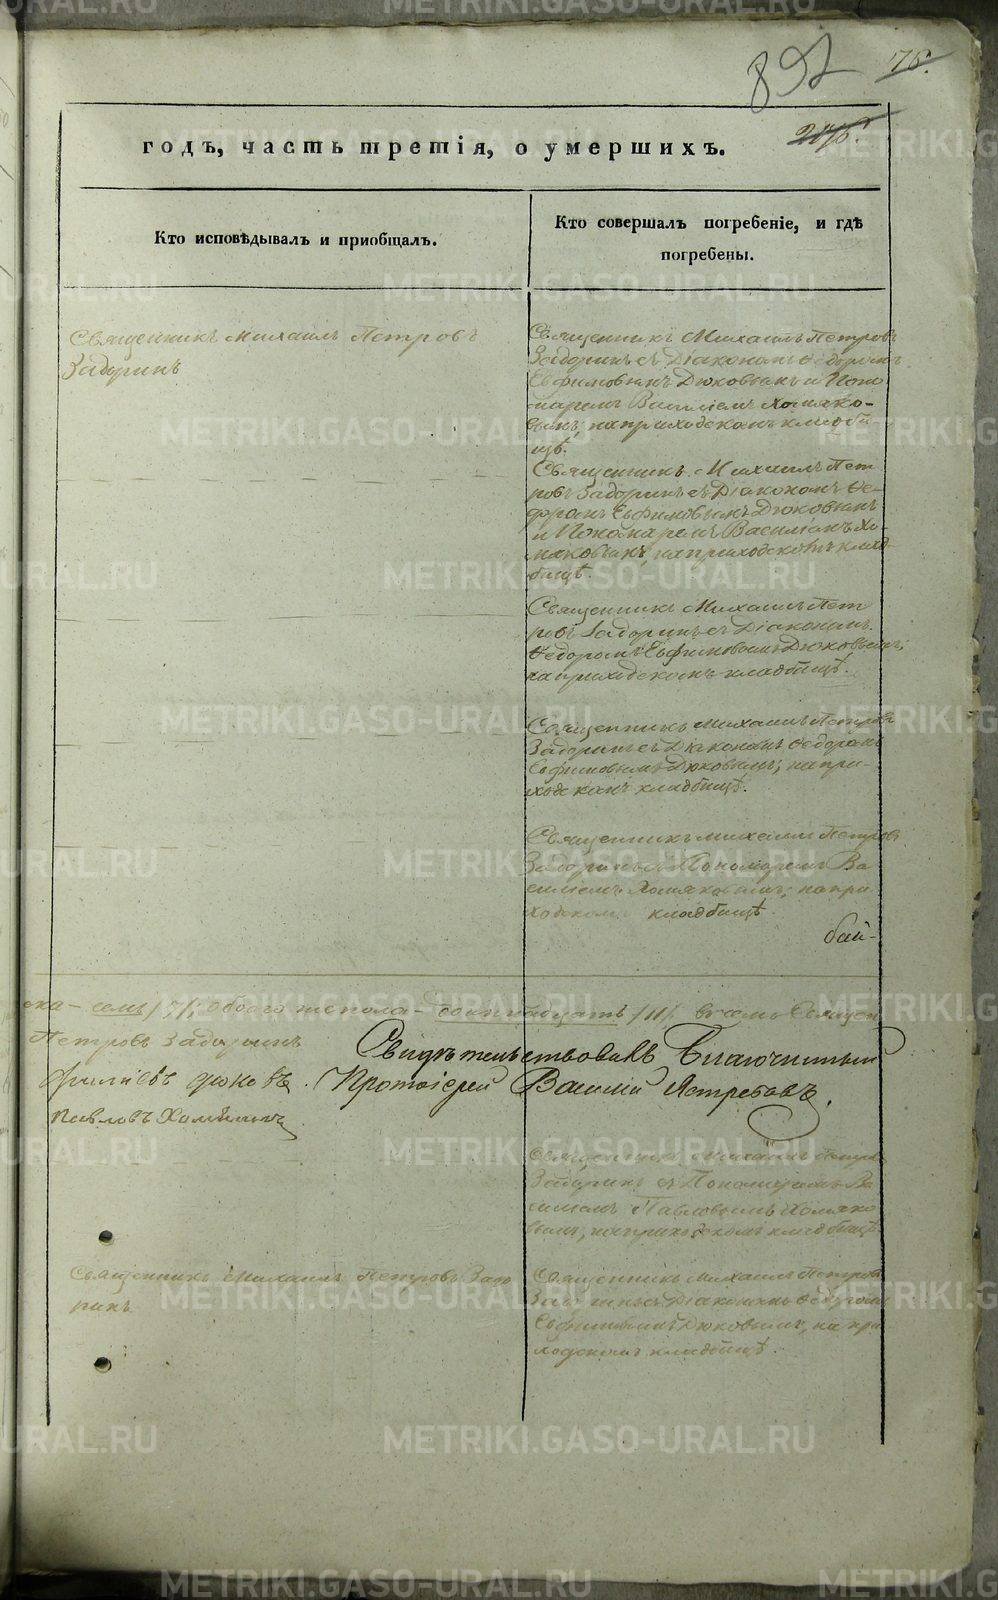 892
78.
годъ, часть третія, о умершихъ.
Кто исповѣдывалъ и приобщалъ.
Кто совершалъ погребеніе, и гдѣ
погребены.
Священникъ Михаилъ Петровъ
Задоринъ
Священникъ Михаилъ Петровъ
Задоринъ съ Діакономъ Ѳедоромъ
Евфимовымъ Дюковымъ и Поно
маремъ Василіемъ Хомяко-
вымъ, на приходскомъ кладби-
щѣ.
Священникъ Михаилъ Пет
ровъ Задоринъ съ Діакономъ Ѳе-
доромъ Евфимовымъ Дюковымъ
и Пономаремъ Василіемъ Хо-
мяковымъ, на приходскомъ клад-
бищѣ.
Священникъ Михаилъ Пет
ровъ Задоринъ съ Діакономъ
Ѳедоромъ Евфимовымъ Дюковымъ,
на приходскомъ кладбищѣ.
Священникъ Михаилъ Петровъ
Задоринъ съ Діакономъ Ѳедоромъ
Евфимовымъ Дюковымъ, на при-
ходскомъ кладбищѣ.
Священникъ Михаилъ Петровъ
Задоринъ съ Пономаремъ Ва
силіемъ Хомяковымъ, на при
ходскомъ кладбищѣ.
бай-
ска - семь /7/, обоего пола - одиннадцать /11/. Священ
Петровъ Задоринъ
Свидѣтельствовалъ Благочинный
Дюковъ.
Протоіерей Василій Ястребовъ.
Павловъ Хомяковъ
Священникъ Михаилъ Петровъ
Задоринъ съ Пономаремъ Ва
силіемъ Павловымъ Хомяко
вымъ, на приходскомъ кладбищѣ
Священникъ Михаилъ Петровъ Задо
ринъ
Священникъ Михаилъ Петровъ
Задоринъ съ Діакономъ Ѳедоромъ
Евфимовымъ Дюковымъ, на при
ходскомъ кладбищѣ.
METRIKI.GASO-URAL.RU